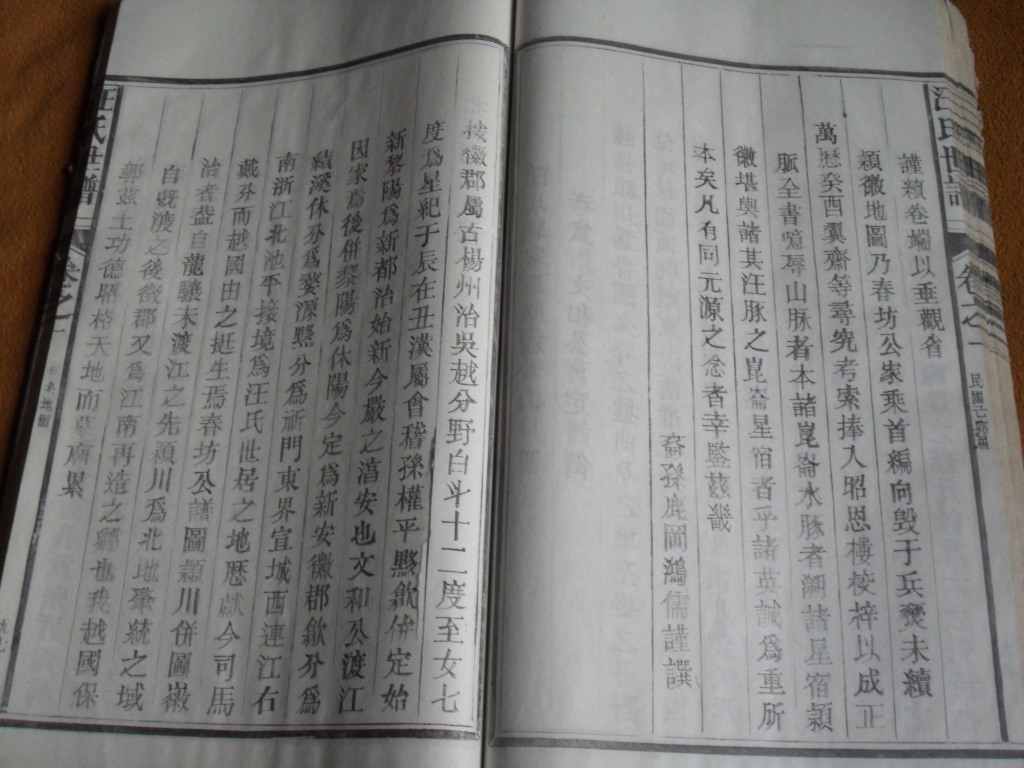 汪氏世譜
卷之一
民國
謹續卷端以垂觀省
潁徽地圖乃春坊公家乗首編向毁于兵燹未續
萬厯癸酉翼齋等尋䆒考索捧入昭恩樓梭梓以成正
脈全書噫辱山脉者本諸崑崙水豚者溯諸星宿潁
徽堪輿諸其汪脉之崑崙星宿者乎諸英誠爲重所
本矣凡有同元源之念者幸監兹畿
裔孫鹿岡鴻儒謹譔
按徽郡屬古楊州治吳越分野白斗十二度至女七
度爲星紀于辰在丑漢屬會稽孫權平黟歙併定始
新黎陽爲新都治始新今嚴之湻安也文和公渡江
因家焉後併黎陽爲休陽今定爲新安徽郡歙分爲
績溪休分爲婺源黟分爲祈門東界宣城西連江右
南浙江北池平接境爲汪氏世居之地厯獻今司馬
戴分而越國由之挺生焉春坊公譜圖潁川併圖嶽
治者葢自瀧驤未渡江之先潁川爲北地肇統之域
自旣渡之後徽郡又爲江南再造之鄉也我越國保
鄣兹土功德昭格天地而墓廟累
汪氏世譜
卷之一
地圖